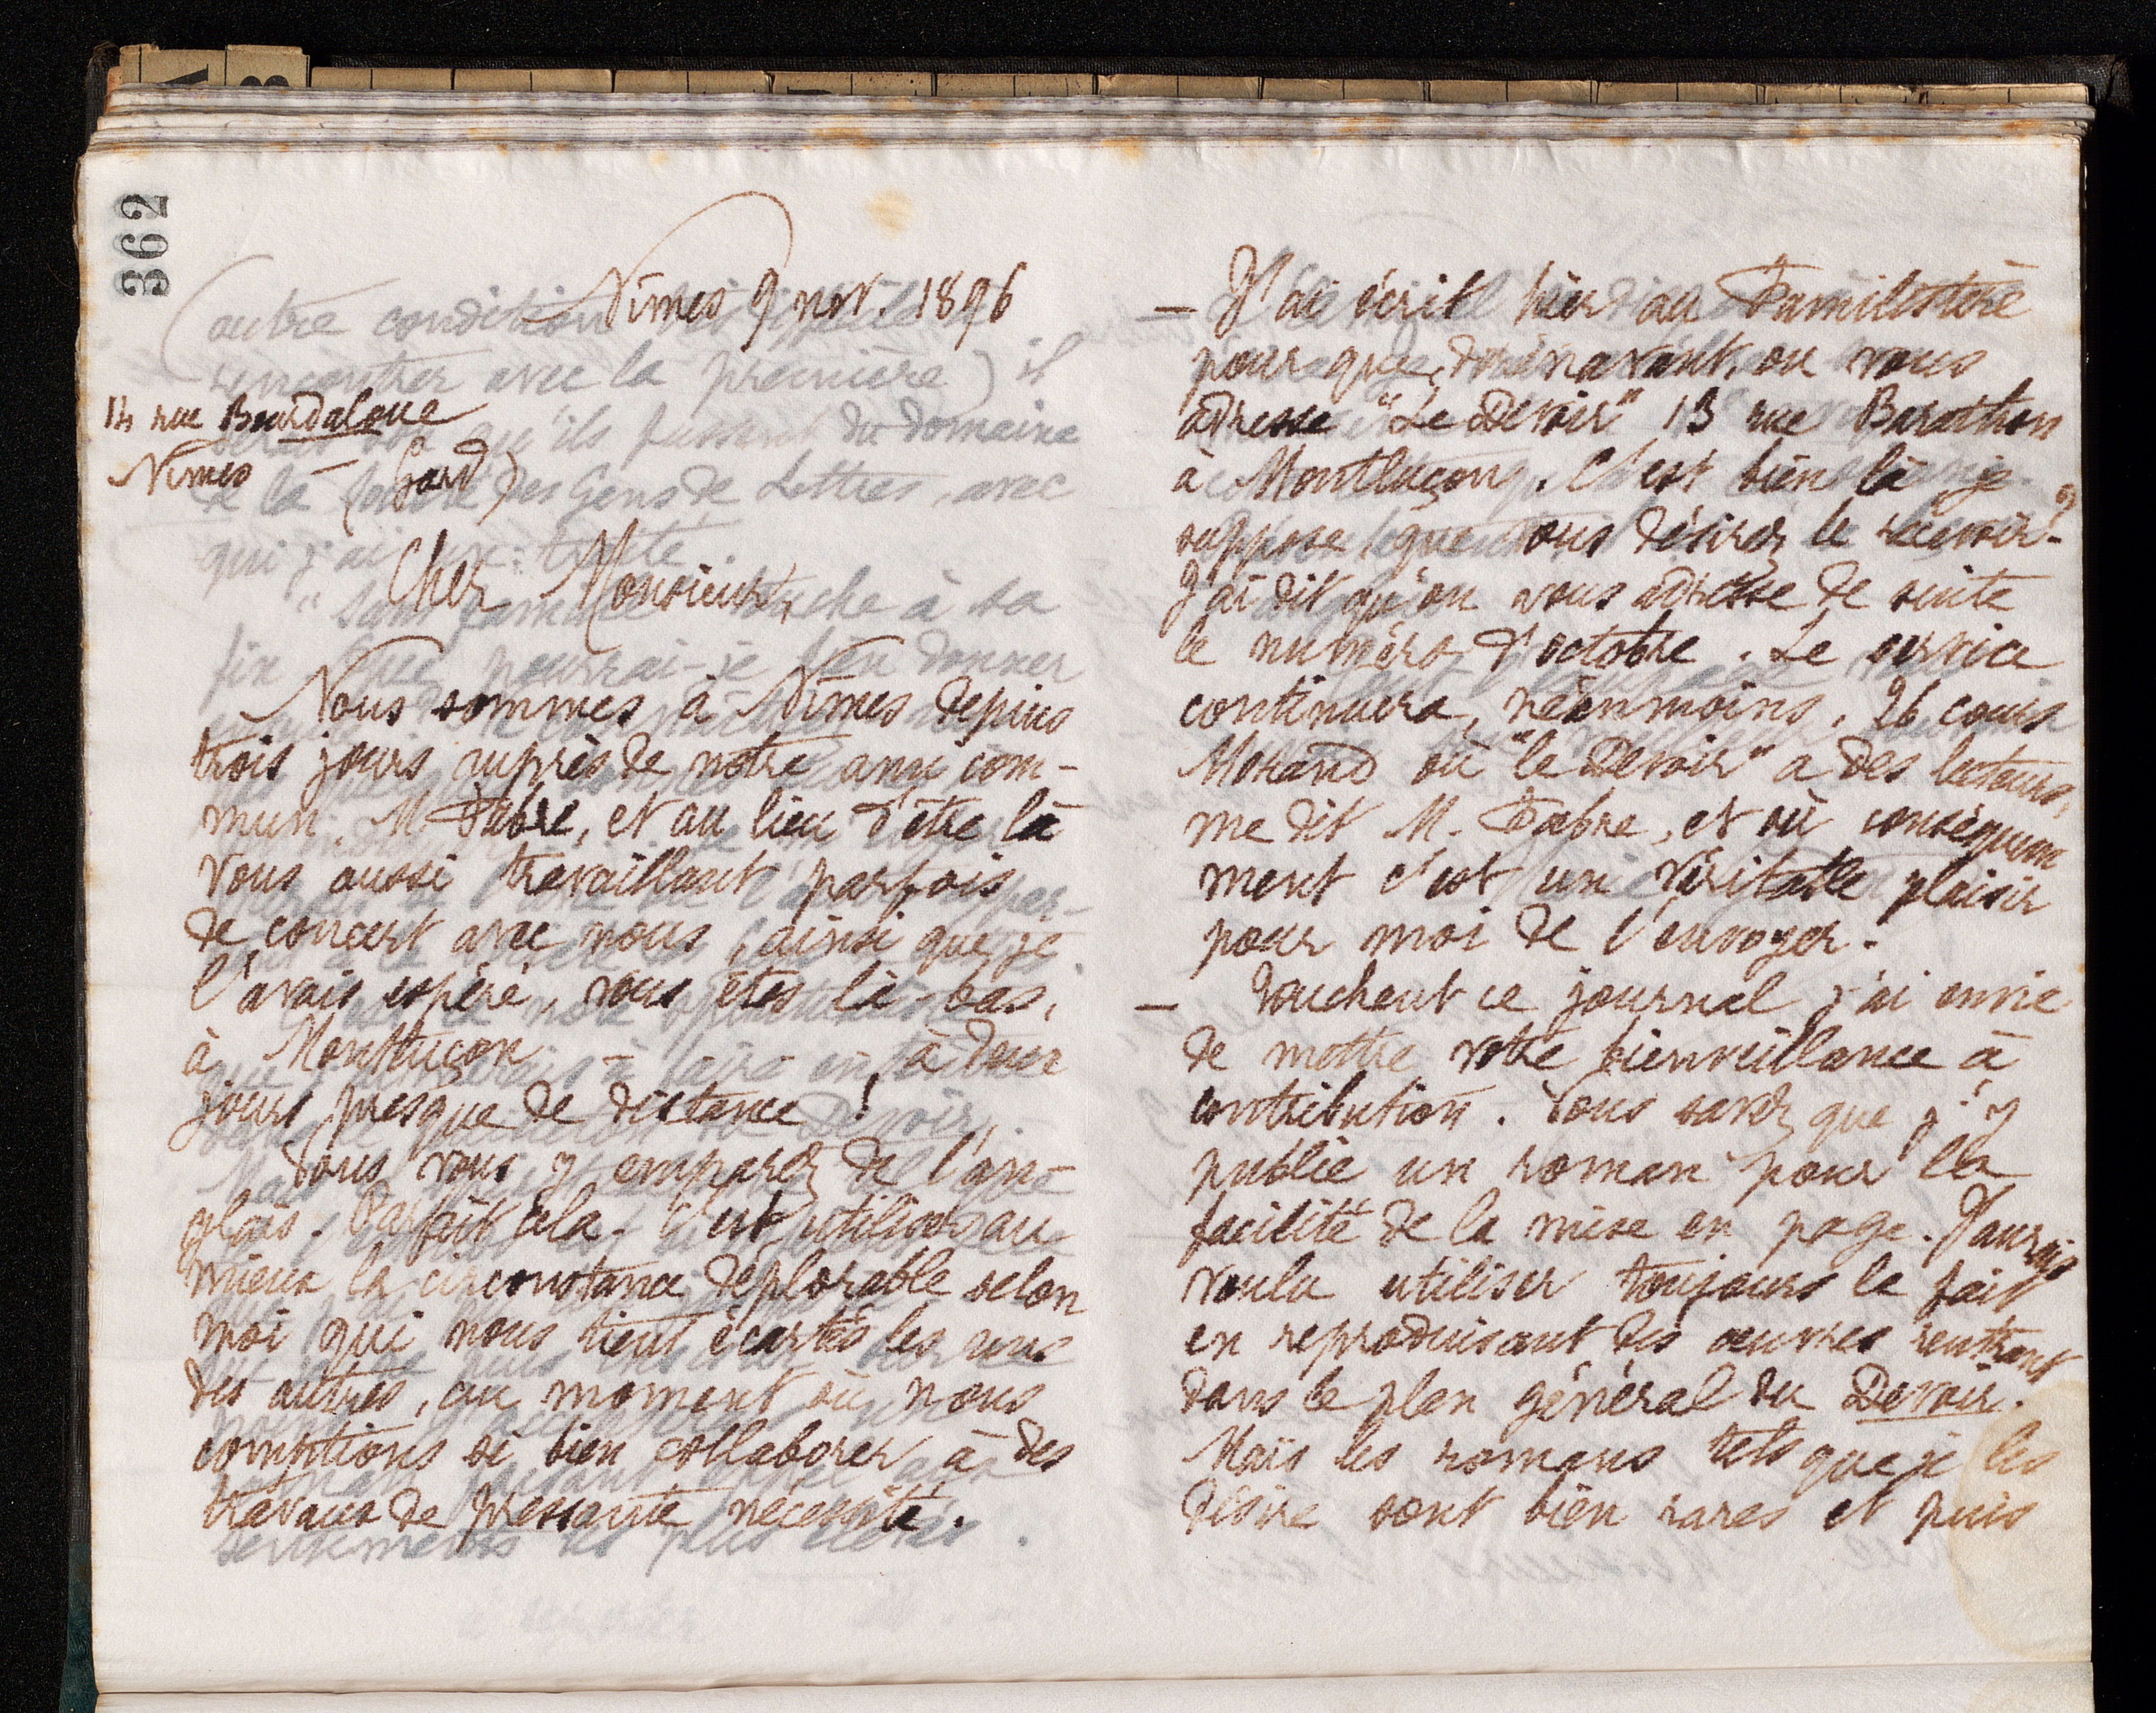 362
Nîmes 9 nov. 1896
14 rue Bourdaloue
Nîmes – (Gard)
Cher Monsieur,
Nous sommes à Nîmes depuis
trois jours auprès de notre ami com-
mun, M. Fabre, et au lieu d'être là
vous aussi travaillant parfois
de concert avec nous, ainsi que je
l'avais espéré, vous êtes là-bas,
à Montluçon, à deux
jours presque de distance !
Vous vous y emparez de l'an-
glais. Parfait cela. C'est utiliser au
mieux la circonstance déplorable selon
moi qui nous tient écartés les uns
des autres, au moment où nous
comptions si bien collaborer à des
travaux de pressante nécessité.
– J'ai écrit hier au Familistère
pour que, dorénavant, on vous
adresse "Le Devoir" 13 rue Barathon
à Montluçon. C'est bien là, je
suppose, que vous désirez le recevoir ?
J'ai dit qu'on vous adresse de suite
le numéro d'octobre. Le service
continuera, néanmoins, 26 cours
Morand où "le Devoir" a des lecteurs,
me dit M. Fabre, et où conséquem
ment c'est un véritable plaisir
pour moi de l'envoyer.
– Touchant ce journal j'ai envie
de mettre votre bienveillance à
contribution. Vous savez que j'y
publie un roman pour la
facilité de la mise en page. J'aurais
voulu utiliser toujours le fait
en reproduisant des œuvres rentrant
dans le plan général du Devoir.
Mais les romans tels que je les
désire sont bien rares et puis